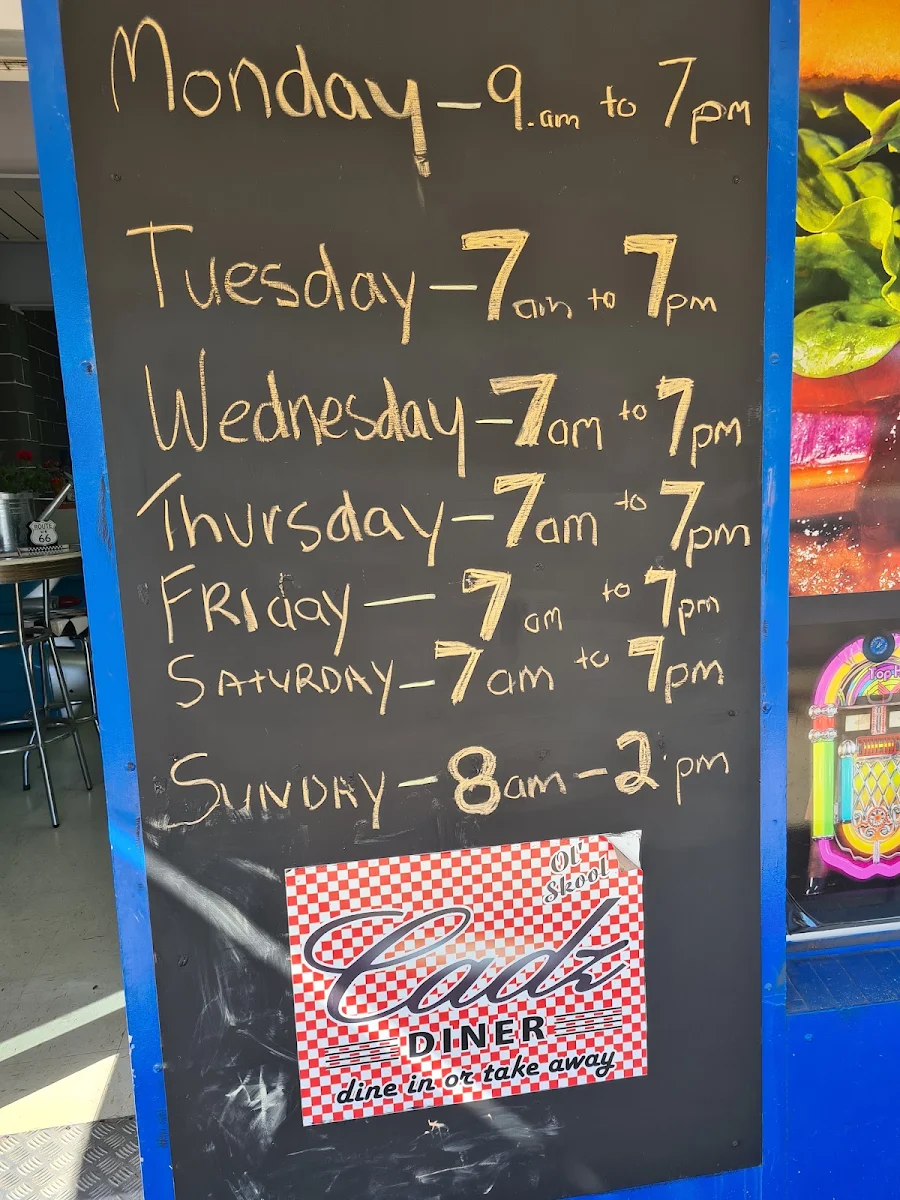 Monday - 9.am to 7pm
Tuesday - 7am to 7pm
Wednesday - 7am to 7pm
Thursday - 7am to 7pm
FRIday - 7am to 7pm
SAtURDAY - 7am to 7pm
SUNDAY - 8am - 2 pm
OL'
Skool
Cadz
DINER
dine in or take away
ROUTE
66